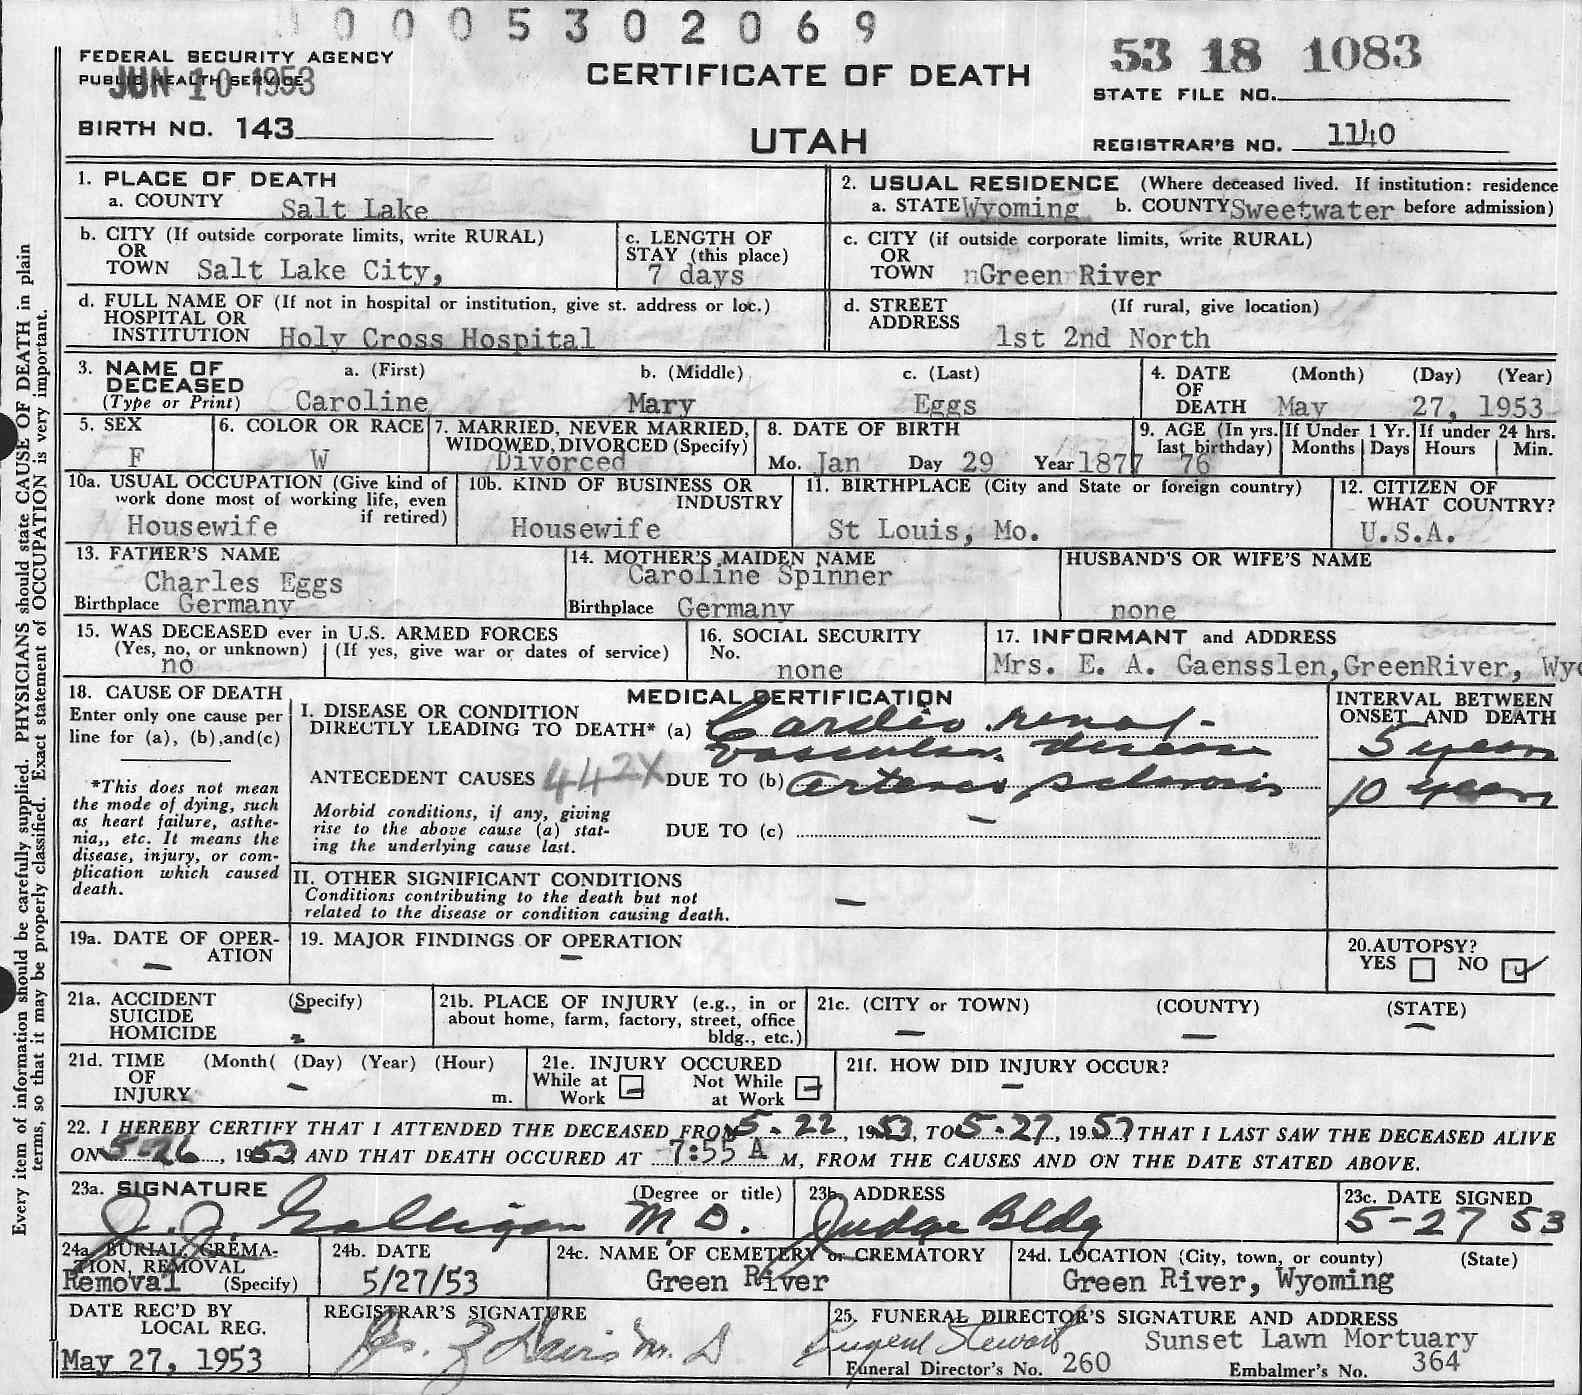 0005302069
FEDERAL SECURITY AGENCY
PUBLIC HEALTH SERVICE
JUN 10 1953
BIRTH NO. 143
CERTIFICATE OF DEATH
UTAH
53 18 1083
STATE FILE NO.
REGISTRAR'S NO. 1140
Every item of information should be carefully supplied. PHYSICIANS should state CAUSE OF DEATH in plain
terms, so that it may be properly classified. Exact statement of OCCUPATION is very important.
1. PLACE OF DEATH
a. COUNTY Salt Lake
2. USUAL RESIDENCE (Where deceased lived. If institution: residence
a. STATE Wyoming b. COUNTY Sweetwater before admission)
b. CITY (If outside corporate limits, write RURAL)
OR
TOWN Salt Lake City,
c. LENGTH OF
STAY (this place)
7 days
c. CITY (if outside corporate limits, write RURAL)
OR
TOWN nGreen River
d. FULL NAME OF (If not in hospital or institution, give st. address or loc.)
HOSPITAL OR
INSTITUTION Holy Cross Hospital
d. STREET (If rural, give location)
ADDRESS
1st 2nd North
3. NAME OF
DECEASED
(Type or Print)
a. (First) b. (Middle) c. (Last)
Caroline Mary Eggs
4. DATE (Month) (Day) (Year)
OF
DEATH May 27, 1953
5. SEX
F
6. COLOR OR RACE
W
7. MARRIED, NEVER MARRIED,
WIDOWED, DIVORCED (Specify)
Divorced
8. DATE OF BIRTH
Mo. Jan Day 29 Year 1877
9. AGE (In yrs.
last birthday)
76
If Under 1 Yr.
Months Days
If under 24 hrs.
Hours Min.
10a. USUAL OCCUPATION (Give kind of
work done most of working life, even
if retired)
Housewife
10b. KIND OF BUSINESS OR
INDUSTRY
Housewife
11. BIRTHPLACE (City and State or foreign country)
St Louis, Mo.
12. CITIZEN OF
WHAT COUNTRY?
U.S.A.
13. FATHER'S NAME
Charles Eggs
Birthplace Germany
14. MOTHER'S MAIDEN NAME
Caroline Spinner
Birthplace Germany
HUSBAND'S OR WIFE'S NAME
none
15. WAS DECEASED ever in U.S. ARMED FORCES
(Yes, no, or unknown) (If yes, give war or dates of service)
no
16. SOCIAL SECURITY
No.
none
17. INFORMANT and ADDRESS
Mrs. E. A. Gaensslen, GreenRiver, Wyo
18. CAUSE OF DEATH
Enter only one cause per
line for (a), (b), and (c)
*This does not mean
the mode of dying, such
as heart failure, asthe-
nia,, etc. It means the
disease, injury, or com-
plication which caused
death.
MEDICAL CERTIFICATION
I. DISEASE OR CONDITION
DIRECTLY LEADING TO DEATH* (a) Cardio renal-
vascular disease
ANTECEDENT CAUSES 442X DUE TO (b) Arterio sclerosis
Morbid conditions, if any, giving
rise to the above cause (a) stat-
ing the underlying cause last.
DUE TO (c) —
INTERVAL BETWEEN
ONSET AND DEATH
5 years
10 years
II. OTHER SIGNIFICANT CONDITIONS
Conditions contributing to the death but not
related to the disease or condition causing death.
—
19a. DATE OF OPER-
ATION
—
19. MAJOR FINDINGS OF OPERATION
—
20. AUTOPSY?
YES NO ✓
21a. ACCIDENT (Specify)
SUICIDE
HOMICIDE
21b. PLACE OF INJURY (e.g., in or
about home, farm, factory, street, office
bldg., etc.)
21c. (CITY or TOWN) (COUNTY) (STATE)
— — —
21d. TIME (Month( (Day) (Year) (Hour)
OF
INJURY — m.
21e. INJURY OCCURED
While at Work — Not While at Work —
21f. HOW DID INJURY OCCUR?
—
22. I HEREBY CERTIFY THAT I ATTENDED THE DECEASED FROM 5-22, 1953, TO 5-27, 1953, THAT I LAST SAW THE DECEASED ALIVE
ON 5-26, 1953 AND THAT DEATH OCCURED AT 7:55 A M, FROM THE CAUSES AND ON THE DATE STATED ABOVE.
23a. SIGNATURE (Degree or title)
J. J. Galligan M.D.
23b. ADDRESS
Judge Bldg
23c. DATE SIGNED
5-27 53
24a. BURIAL, CREMA-
TION, REMOVAL
Removal (Specify)
24b. DATE
5/27/53
24c. NAME OF CEMETERY or CREMATORY
Green River
24d. LOCATION (City, town, or county) (State)
Green River, Wyoming
DATE REC'D BY
LOCAL REG.
May 27, 1953
REGISTRAR'S SIGNATURE
Davis M. D
25. FUNERAL DIRECTOR'S SIGNATURE AND ADDRESS
Eugene Stewart Sunset Lawn Mortuary
Funeral Director's No. 260 Embalmer's No. 364